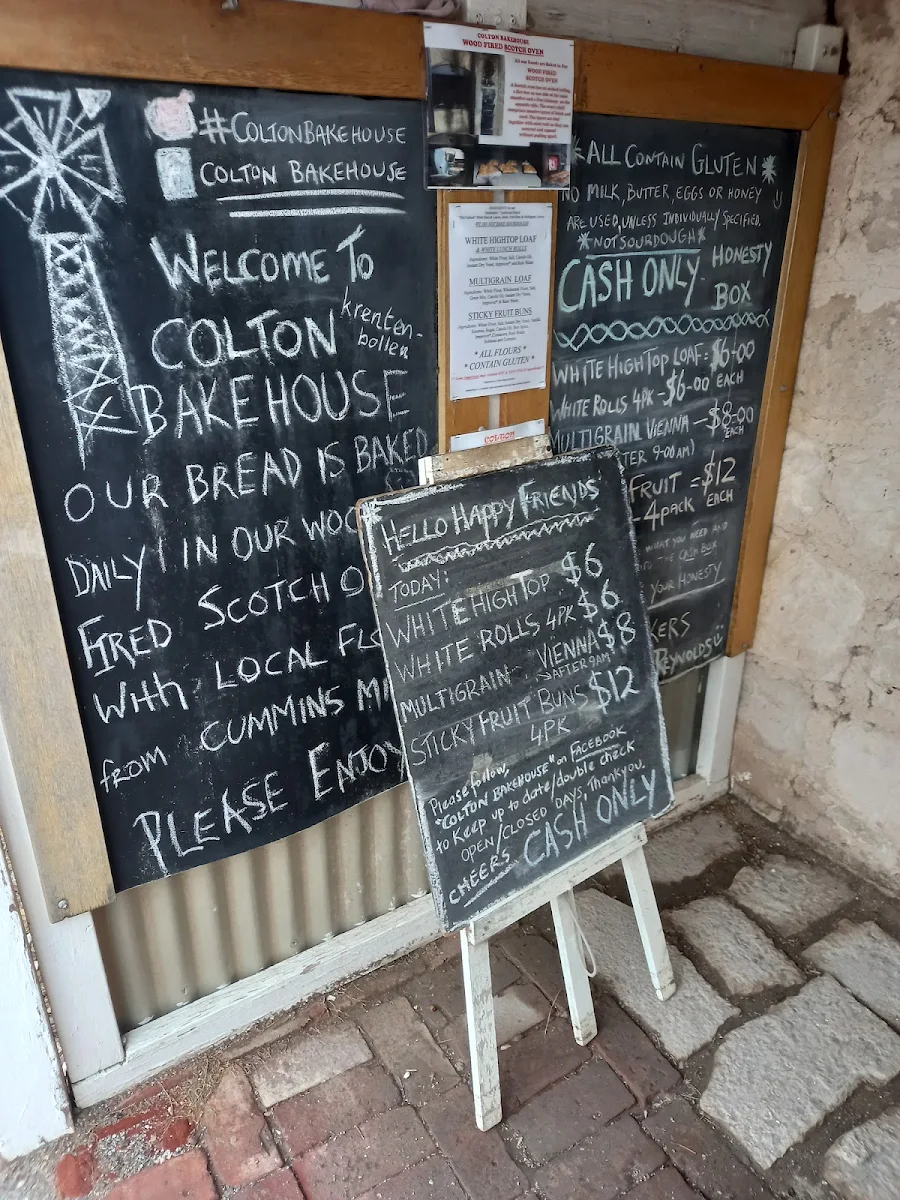 #COLTONBAKEHOUSE
COLTON BAKEHOUSE
WELCOME TO
COLTON
krenten-
bollen
BAKEHOUSE
OUR BREAD IS BAKED
DAILY IN OUR WOO
FIRED SCOTCH O
WITH LOCAL FLO
from CUMMINS MI
PLEASE ENJOY
COLTON BAKEHOUSE
WOOD FIRED SCOTCH OVEN
WOOD FIRED
SCOTCH OVEN
WHITE HIGHTOP LOAF
& WHITE LUNCH ROLLS
MULTIGRAIN LOAF
STICKY FRUIT BUNS
* ALL FLOURS *
* CONTAIN GLUTEN *
COLTON
*ALL CONTAIN GLUTEN*
NO MILK, BUTTER, EGGS OR HONEY
ARE USED, UNLESS INDIVIDUALLY SPECIFIED.
*NOT SOURDOUGH*
CASH ONLY - HONESTY
BOX
WHITE HIGHTOP LOAF = $6-00
WHITE ROLLS 4PK - $6-00 EACH
MULTIGRAIN VIENNA - $8-00
EACH
TER 9-00AM)
FRUIT = $12
-4pack EACH
WHAT YOU NEED AND
CASH BOX
YOUR HONESTY
KERS
REYNOLDS
HELLO HAPPY FRIENDS
TODAY:
WHITE HIGH TOP $6
WHITE ROLLS 4PK $6
MULTIGRAIN VIENNA $8
AFTER 9AM
STICKY FRUIT BUNS $12
4PK
Please follow,
"COLTON BAKEHOUSE" on FACEBOOK
to keep up to date/double check
OPEN/CLOSED DAYS, Thankyou.
CHEERS. CASH ONLY